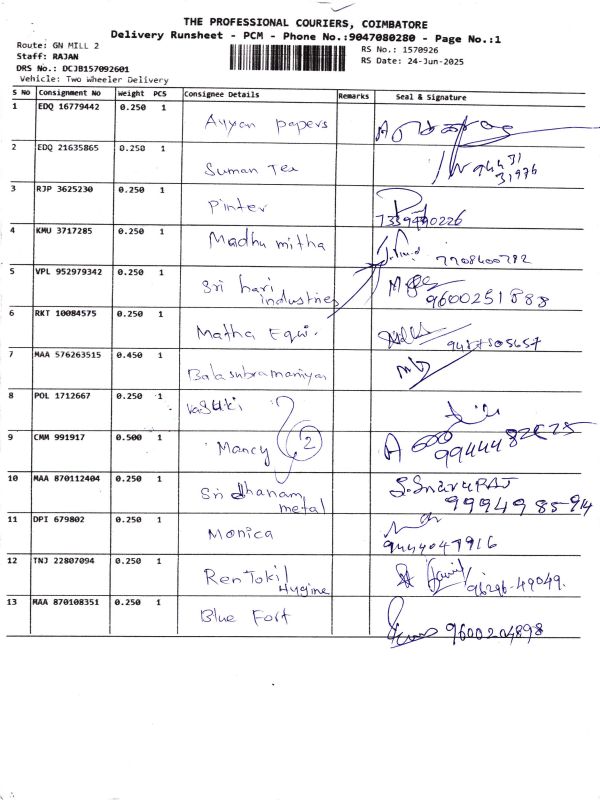 THE PROFESSIONAL COURIERS, COIMBATORE
Delivery Runsheet - PCM - Phone No.:9047080280 - Page No.:1
Route: GN MILL 2
RS No.: 1570926
Staff: RAJAN
RS Date: 24-Jun-2025
DRS No.: DCJB157092601
Vehicle: Two Wheeler Delivery
S No Consignment No Weight PCS Consignee Details Remarks Seal & Signature
1 EDQ 16779442 0.250 1 Ayyan papers
2 EDQ 21635865 0.250 1 Suman Tex 94431
31976
3 RJP 3625230 0.250 1 Pinter
7339490226
4 KMU 3717285 0.250 1 Madhu mitha 7708400782
5 VPL 952979342 0.250 1 Sri hari
industries 9600251888
6 RKT 10084575 0.250 1 Matha Equi.
7 MAA 576263515 0.450 1 Balasubramaniyan
8 POL 1712667 0.250 1 Vasuki
9 CMM 991917 0.500 1 Mancy 2
10 MAA 870112404 0.250 1 Sri dhanam
metal 99949 85914
11 DPI 679802 0.250 1 Monica
9444047916
12 TNJ 22807094 0.250 1 Rentokil
Hygine 96296-49049.
13 MAA 870108351 0.250 1 Blue Fort 9600204898